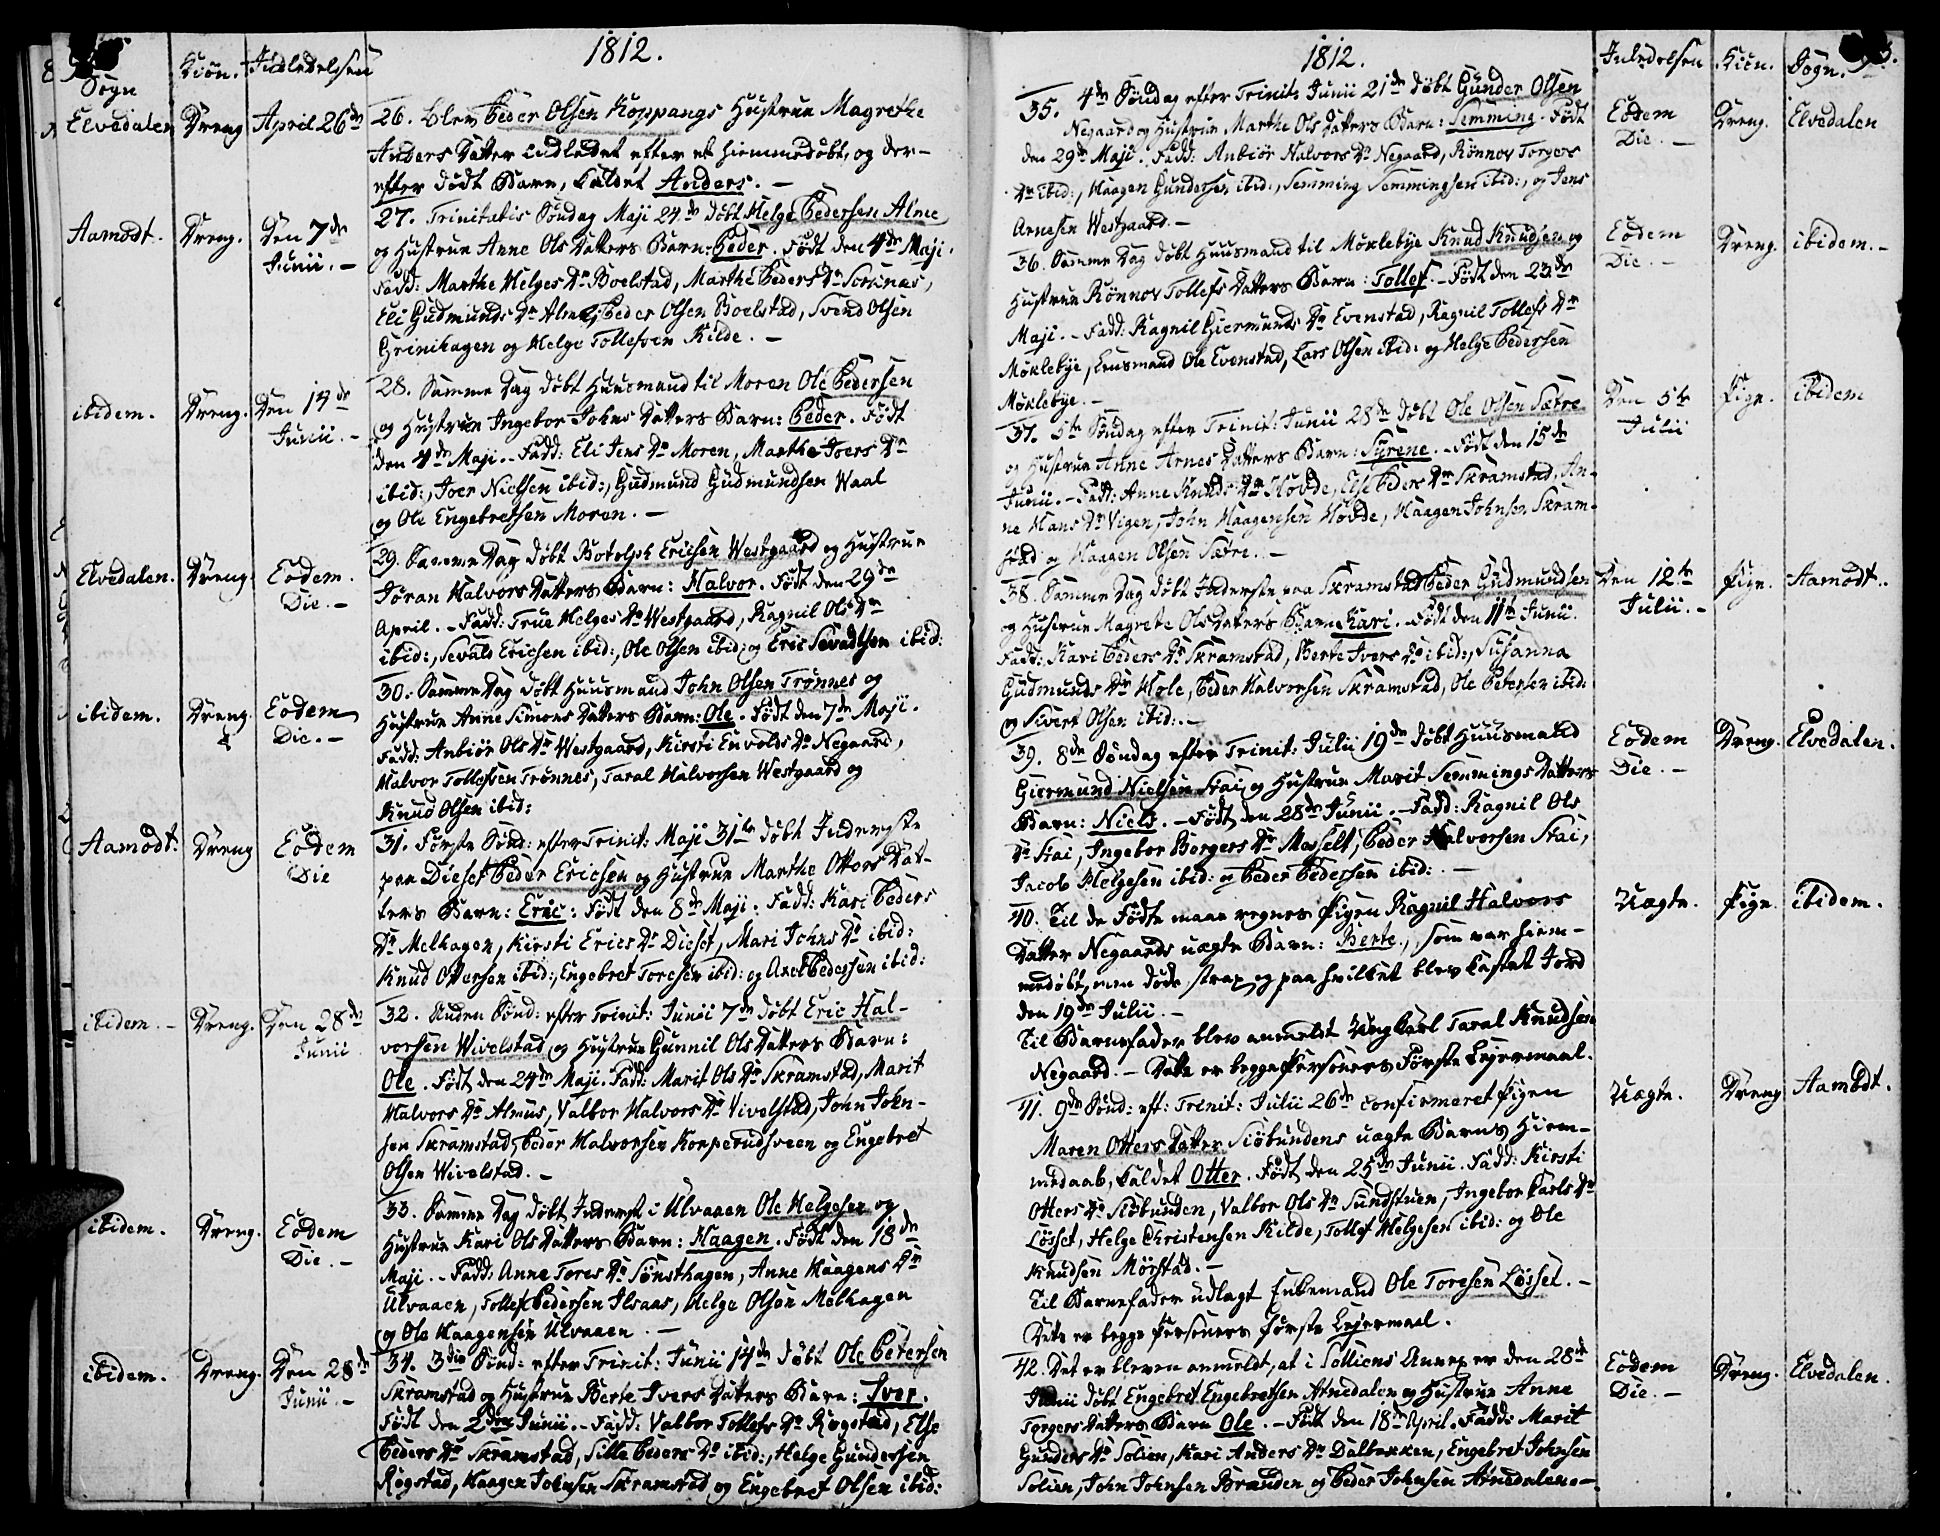 1812.
Sogn
Kiön.
Indledelsen
Elvedalen
Dreng
April 26de
26. Blev Peder Olsen Koppangs Hustrue Magrethe
Anders Datter indledet efter et hiemmedøbt, og der-
efter dødt Barn, kaldet Anders. -
Aamodt.
Dreng.
Den 7de
Junii. -
27. Trinitatis Søndag Maji 24de døbt Helge Pedersen Alme
og Hustrue Anne Ols Datters Barn: Peder. Født den 4de Maji.
Fadd: Marthe Helges Dr Boelstad, Marthe Peders Dr Sorknæs,
Eli Gudmunds Dr Alme, Peder Olsen Boelstad, Svend Olsen
Grinihagen og Helge Tollefsen Kilde. -
ibidem.
Dreng.
Den 14de
Junii. -
28. Samme Dag døbt Huusmand til Moren Ole Pedersen
og Hustrue Ingebor Johns Datters Barn: Peder. Født
den 4de Maji. - Fadd: Eli Jens Dr Moren, Marthe Joers Dr
ibid:, Joer Nielsen ibid:, Gudmund Gudmundsen Waal
og Ole Engebretsen Moren. -
Elvedalen.
Dreng.
Eodem
Die. -
29. Samme Dag døbt Botolph Ericsen Westgaard og Hustrue
Jöran Halvors Datters Barn: Halvor. Født den 29de
April. - Fadd: True Helges Dr Westgaard, Ragnil Ols Dr
ibid:, Sevald Ericsen ibid:, Ole Olsen ibid: og Eric Sevaldsen ibid:
ibidem.
Dreng.
Eodem
Die. -
30. Samme Dag døbt Huusmand John Olsen Trønnes og
Hustrue Anne Simons Datters Barn: Ole. Født den 7de Maji.
Fadd: Anbiör Ols Dr Westgaard, Kirsti Envolds Dr Negaard,
Halvor Tollefsen Trønnes, Taral Halvorsen Westgaard og
Knud Olsen ibid:
Aamodt.
Dreng
Eodem
Die
31. Første Sønd: efter Trinit: Maji 31te døbt Inderste
paa Dieset Peder Ericsen og Hustrue Marthe Otters Dat-
ters Barn: Eric: Født den 8de Maji. Fadd: Kari Peders
Dr Melhagen, Kirsti Erics Dr Dieset, Mari Johns Dr ibid:
Knud Ottersen ibid:, Engebret Toresen ibid: og Axel Pedersen ibid:
ibidem. -
Dreng.
Den 28de
Junii
32. Anden Sønd: efter Trinit: Junii 7de døbt Eric Hal-
vorsen Wivelstad og Hustrue Gunnil Ols Datters Barn:
Ole. Født den 24de Maji. Fadd: Marit Ols Dr Skramstad, Marit
Halvors Dr Almus, Valbor Halvors Dr Vivelstad, John John-
sen Skramstad, Peder Halvorsen Korperudsveen og Engebret
Olsen Wivelstad. -
ibidem.
Dreng.
Eodem
Die. -
33. Samme Dag døbt Inderst i Ulvaaen Ole Helgesen og
Hustrue Kari Ols Datters Barn: Haagen. Født den 18de
Maji. - Fadd: Anne Tores Dr Sønsthagen, Anne Haagens Dr
Ulvaaen, Tollef Pedersen Ilsaas, Helge Olsen Melhagen
og Ole Haagensen Ulvaaen. -
ibidem.
Dreng.
Den 28de
Junii. -
34. 3die Sønd: efter Trinit: Junii 14de døbt Ole Petersen
Skramstad og Hustrue Berte Ivers Datters Barn: Iver.
Født den 2den Junii. - Fadd: Valbor Tollefs Dr Rogstad, Else
Peders Dr Skramstad, Sille Peders Dr ibid:, Helge Gundersen
Rogstad, Haagen Johnsen Skramstad og Engebret Olsen ibid:
1812.
Indledelsen
Kiön.
Sogn.
35. 4de Søndag efter Trinit: Junii 21de døbt Gunder Olsen
Negaard og Hustrue Marthe Ols Datters Barn: Semming. Født
den 29de Maji. Fadd: Anbiör Halvors Dr Negaard, Rønnov Torgers
Dr ibid:, Haagen Gundersen ibid:, Semming Semmingsen ibid:, og Jens
Arnesen Westgaard. -
Eodem
Die. -
Dreng.
Elvedalen
36. Samme Dag døbt Huusmand til Møklebye Knud Knudsen og
Hustrue Rønnov Tollefs Datters Barn: Tollef. - Født den 23de
Maji. - Fadd: Ragnil Giermunds Dr Evenstad, Ragnil Tollefs Dr
Møklebye, Lensmand Ole Evenstad, Lars Olsen ibid: og Helge Pedersen
Møklebye. -
Eodem
Die. -
Dreng.
ibidem. -
37. 5te Søndag efter Trinit: Junii 28de døbt Ole Olsen Sætre
og Hustrue Anne Arnes Datters Barn: Syrene. - Født den 15de
Junii. - Fadd: Anne Knuds Dr Hovde, Else Peders Dr Skramstad, An-
ne Hans Dr Vigen, John Haagensen Hovde, Haagen Johnsen Skram-
stad og Haagen Olsen Sætre. -
Den 5te
Julii
Pige.
ibidem
38. Samme Dag døbt Inderste paa Skramstad Peder Gudmundsen
og Hustrue Magrete Ols Datters Barn Kari. - Født den 11te Junii.
Fadd: Kari Peders Dr Skramstad, Berte Ivers Dr ibid:, Susanna
Gudmunds Dr Hole, Peder Halvorsen Skramstad, Ole Petersen ibid:
og Sivert Olsen ibid:. -
Den 12te
Julii. -
Pige.
Aamodt.
39. 8de Søndag efter Trinit: Julii 19de døbt Huusmand
Giermund Nielsen Stai og Hustrue Marit Semmings Datters
Barn: Niels. - Født den 28de Junii. - Fadd: Ragnil Ols
Dr Stai, Ingebor Borgers Dr Messelt, Peder Halvorsen Stai,
Jacob Helgesen ibid: og Peder Pedersen ibid: -
Eodem
Die. -
Dreng.
Elvedalen.
40. Til de Fødte maae regnes Pigen Ragnil Halvors
Datter Negaards uægte Barn: Berte, som var hiem-
medøbt, men døde strax, og paa hvilket blev kastet Jord
den 19de Julii. -
Til Barnefader blev anmeldt Ungkarl Taral Knudsen
Negaard. - Dette er begge Personers Første Leiermaal.
Uægte.
Pige.
ibidem.
41. 9de Sønd: eft: Trinit: Julii 26de confirmeret Pigen
Maren Otters Datter Siøbundens uægte Barns Hiem-
medaab, kaldet Otter. Født den 25de Junii. Fadd: Kirsti
Otters Dr Siøbunden, Valbor Ols Dr Sundstuen, Ingebor Carls Dr
Løsset, Helge Christensen Kilde, Tollef Helgesen ibid: og Ole
Knudsen Mørstad. -
Til Barnefader udlagt Enkemand Ole Toresen Løsset. -
Dette er begge Personers første Lejermaal.
Uægte.
Dreng
Aamodt.
42. Det er bleven anmeldt, at i Solliens Annex er den 28de
Junii døbt Engebret Engebretsen Atnedalen og Hustrue Anne
Torgers Datters Barn Ole. - Født den 18de April. Fadd: Marit
Gunders Dr Solien, Kari Anders Dr Dalbakken, Engebret Johnsen
Solien, John Johnsen Branden og Peder Johnsen Atnedalen. -
Eodem
Die. -
Dreng.
Elvedalen.